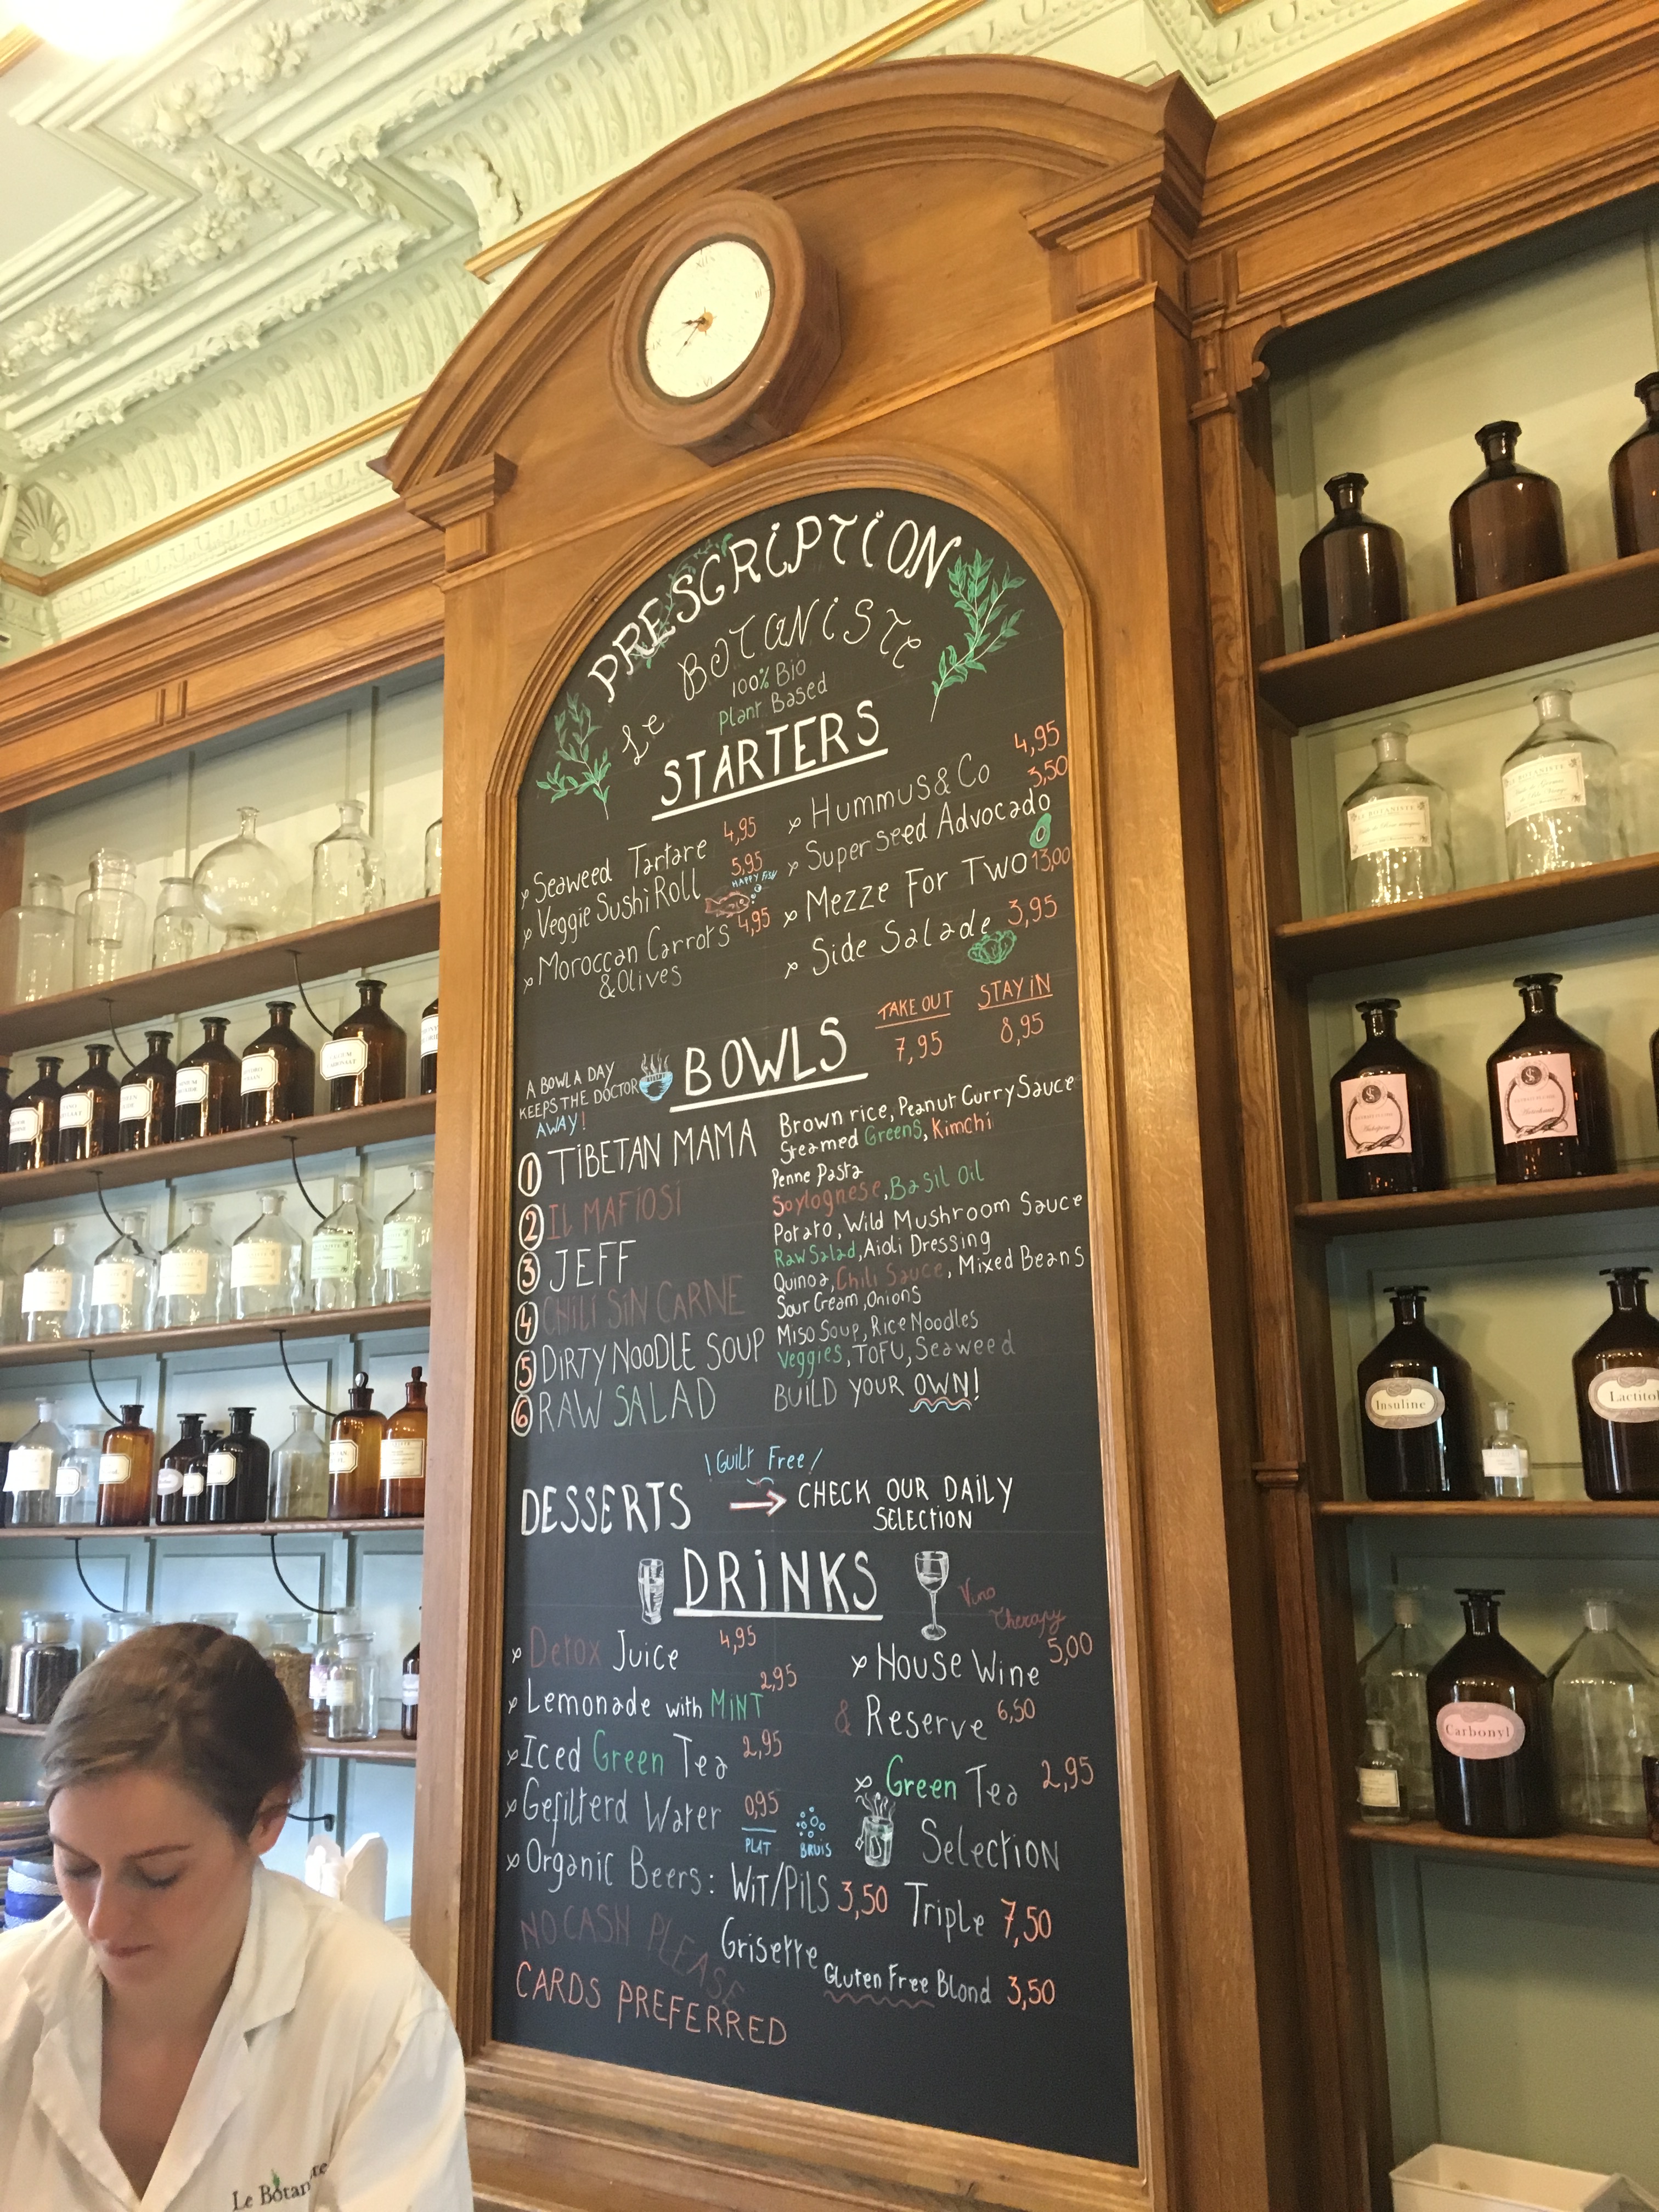 PRESCRIPTION
Le BOTANISTE
100% Bio
Plant Based
STARTERS
Seaweed Tartare 4,95
Veggie Sushi Roll 5,95
HAPPY FISH
Moroccan Carrots 4,95
& Olives
Hummus & Co 4,95
Superseed Advocado 3,50
Mezze For Two 13,00
Side Salade 3,95
A BOWL A DAY
KEEPS THE DOCTOR
AWAY!
BOWLS
TAKE OUT STAY IN
7,95 8,95
1 TIBETAN MAMA
Brown rice, Peanut Curry Sauce
Steamed Greens, Kimchi
2 IL MAFIOSI
Penne Pasta
Soylognese, Basil Oil
3 JEFF
Potato, Wild Mushroom Sauce
Raw Salad, Aioli Dressing
4 CHILI SIN CARNE
Quinoa, Chili Sauce, Mixed Beans
Sour Cream, Onions
5 DIRTY NOODLE SOUP
Miso Soup, Rice Noodles
Veggies, TOFU, Seaweed
6 RAW SALAD
BUILD YOUR OWN!
! Guilt Free /
DESSERTS → CHECK OUR DAILY
SELECTION
DRINKS
Vino
Therapy
Detox Juice 4,95
Lemonade with MINT 2,95
Iced Green Tea 2,95
Gefilterd Water 0,95
PLAT BRUIS
House Wine 5,00
& Reserve 6,50
Green Tea 2,95
Selection
Organic Beers: Wit/Pils 3,50 Triple 7,50
Grisette Gluten Free Blond 3,50
NO CASH PLEASE
CARDS PREFERRED
Insuline
Lactitol
Carbonyl
Le Botan